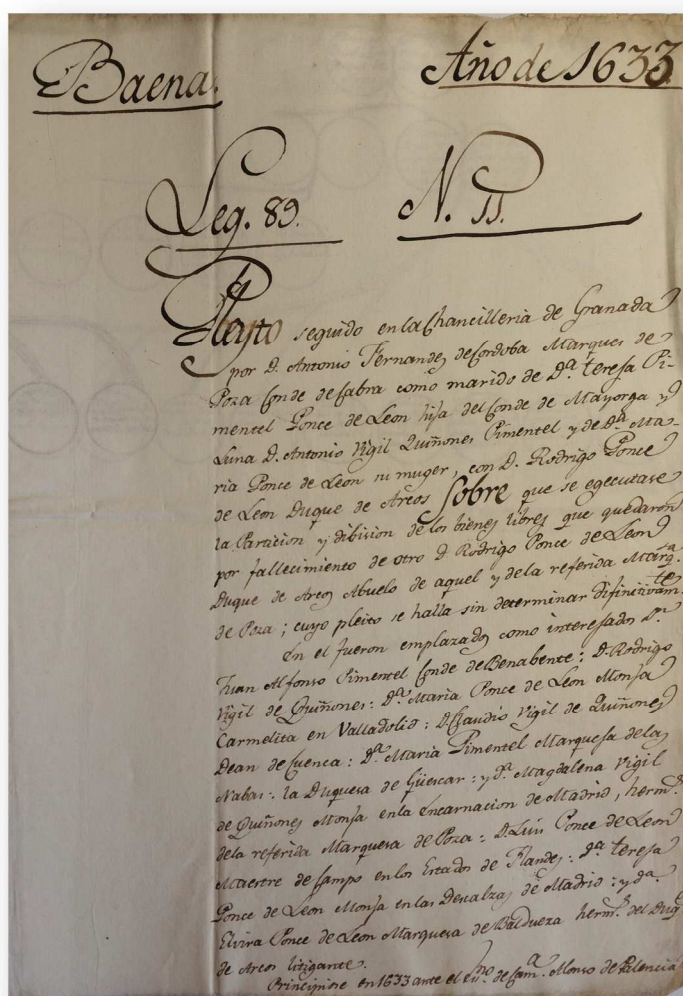 Baena.
Año de 1633
Leg. 89. N. 11.
Pleyto seguido en la Chancilleria de Granada
por D. Antonio Fernandez de Cordoba Marques de
Poza Conde de Cabra como marido de Dª. teresa Pi-
mentel Ponce de Leon hija del Conde de Mayorga y
Luna D. Antonio Vigil Quiñones Pimentel y de Dª. Ma-
ria Ponce de Leon su muger, con D. Rodrigo Ponce
de Leon Duque de Arcos sobre que se egecutase
la Particion y dibision de los bienes libres que quedaron
por fallecimiento de otro D Rodrigo Ponce de Leon
Duque de Arcos Abuelo de aquel y de la referida Marqª.
de Poza; cuyo pleito se halla sin determinar difinitivamte.
En el fueron emplazados como interesados Dn.
Juan Alfonso Pimentel Conde de Benabente: D. Rodrigo
Vigil de Quiñones: Dª. Maria Ponce de Leon Monja
Carmelita en Valladolid: D Claudio Vigil de Quiñones
Dean de Cuenca: Dª. Maria Pimentel Marquesa de las
Nabas: la Duquesa de Güescar: y Dª. Magdalena Vigil
de Quiñones Monja en la Encarnacion de Madrid, hermˢ.
de la referida Marquesa de Poza: D. Luis Ponce de Leon
Maestre de Campo en los Estados de Flandes: Dª. teresa
Ponce de Leon Monja en las Descalzas de Madrid: y Dª.
Elvira Ponce de Leon Marquesa de Baldueza hermˢ. del Duq
de Arcos litigante.
Principiose en 1633 ante el esno. de Camª. Alonso de Palencia